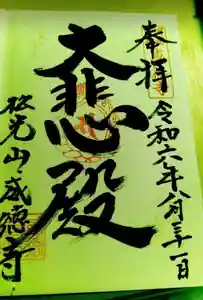 奉拝
令和六年八月三十一日
大悲心殿
松光山 感徳寺